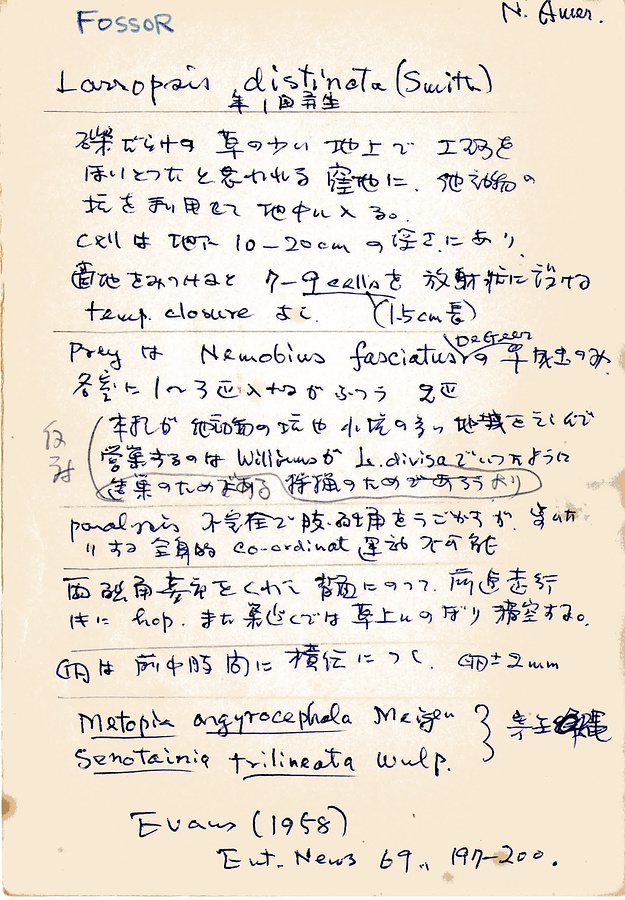 FOSSOR
N. Amer.
Larropsis distincta (Smith)
年1回発生
礫だらけの草の少い地上で エヅを
ほりとったと思われる窪地に、他動物の
坑を利用して地中に入る。
cellは地下10–20cmの深さにあり、
適地をみつけると 7–9 cellsを放射状に設ける
temp. closure なし (1.5cm長)
Prey は Nemobius fasciatus DeGeerの 成虫のみ
各室に1〜3匹入れるがふつう 2匹
反対
本孔が他動物の坑や小坑の多い地域をえらんで
営巣するのは WilliamsがL. divisaでいったように
造巣のためである 狩猟のためであろうより
paralysis 不完全で肢・触角をうごかすが、
する全身的 co-ordinat 運動 不可能
両触角基部をくわえ背面にのって、前進歩行
時に hop. また巣近くでは草上にのぼり滑空する。
卵は前中肢間に横位につく、卵±2mm
Metopia argyrocephala Meigen
Senotainia trilineata Wulp.
寄生蠅
Evans (1958)
Ent. News 69., 197–200.